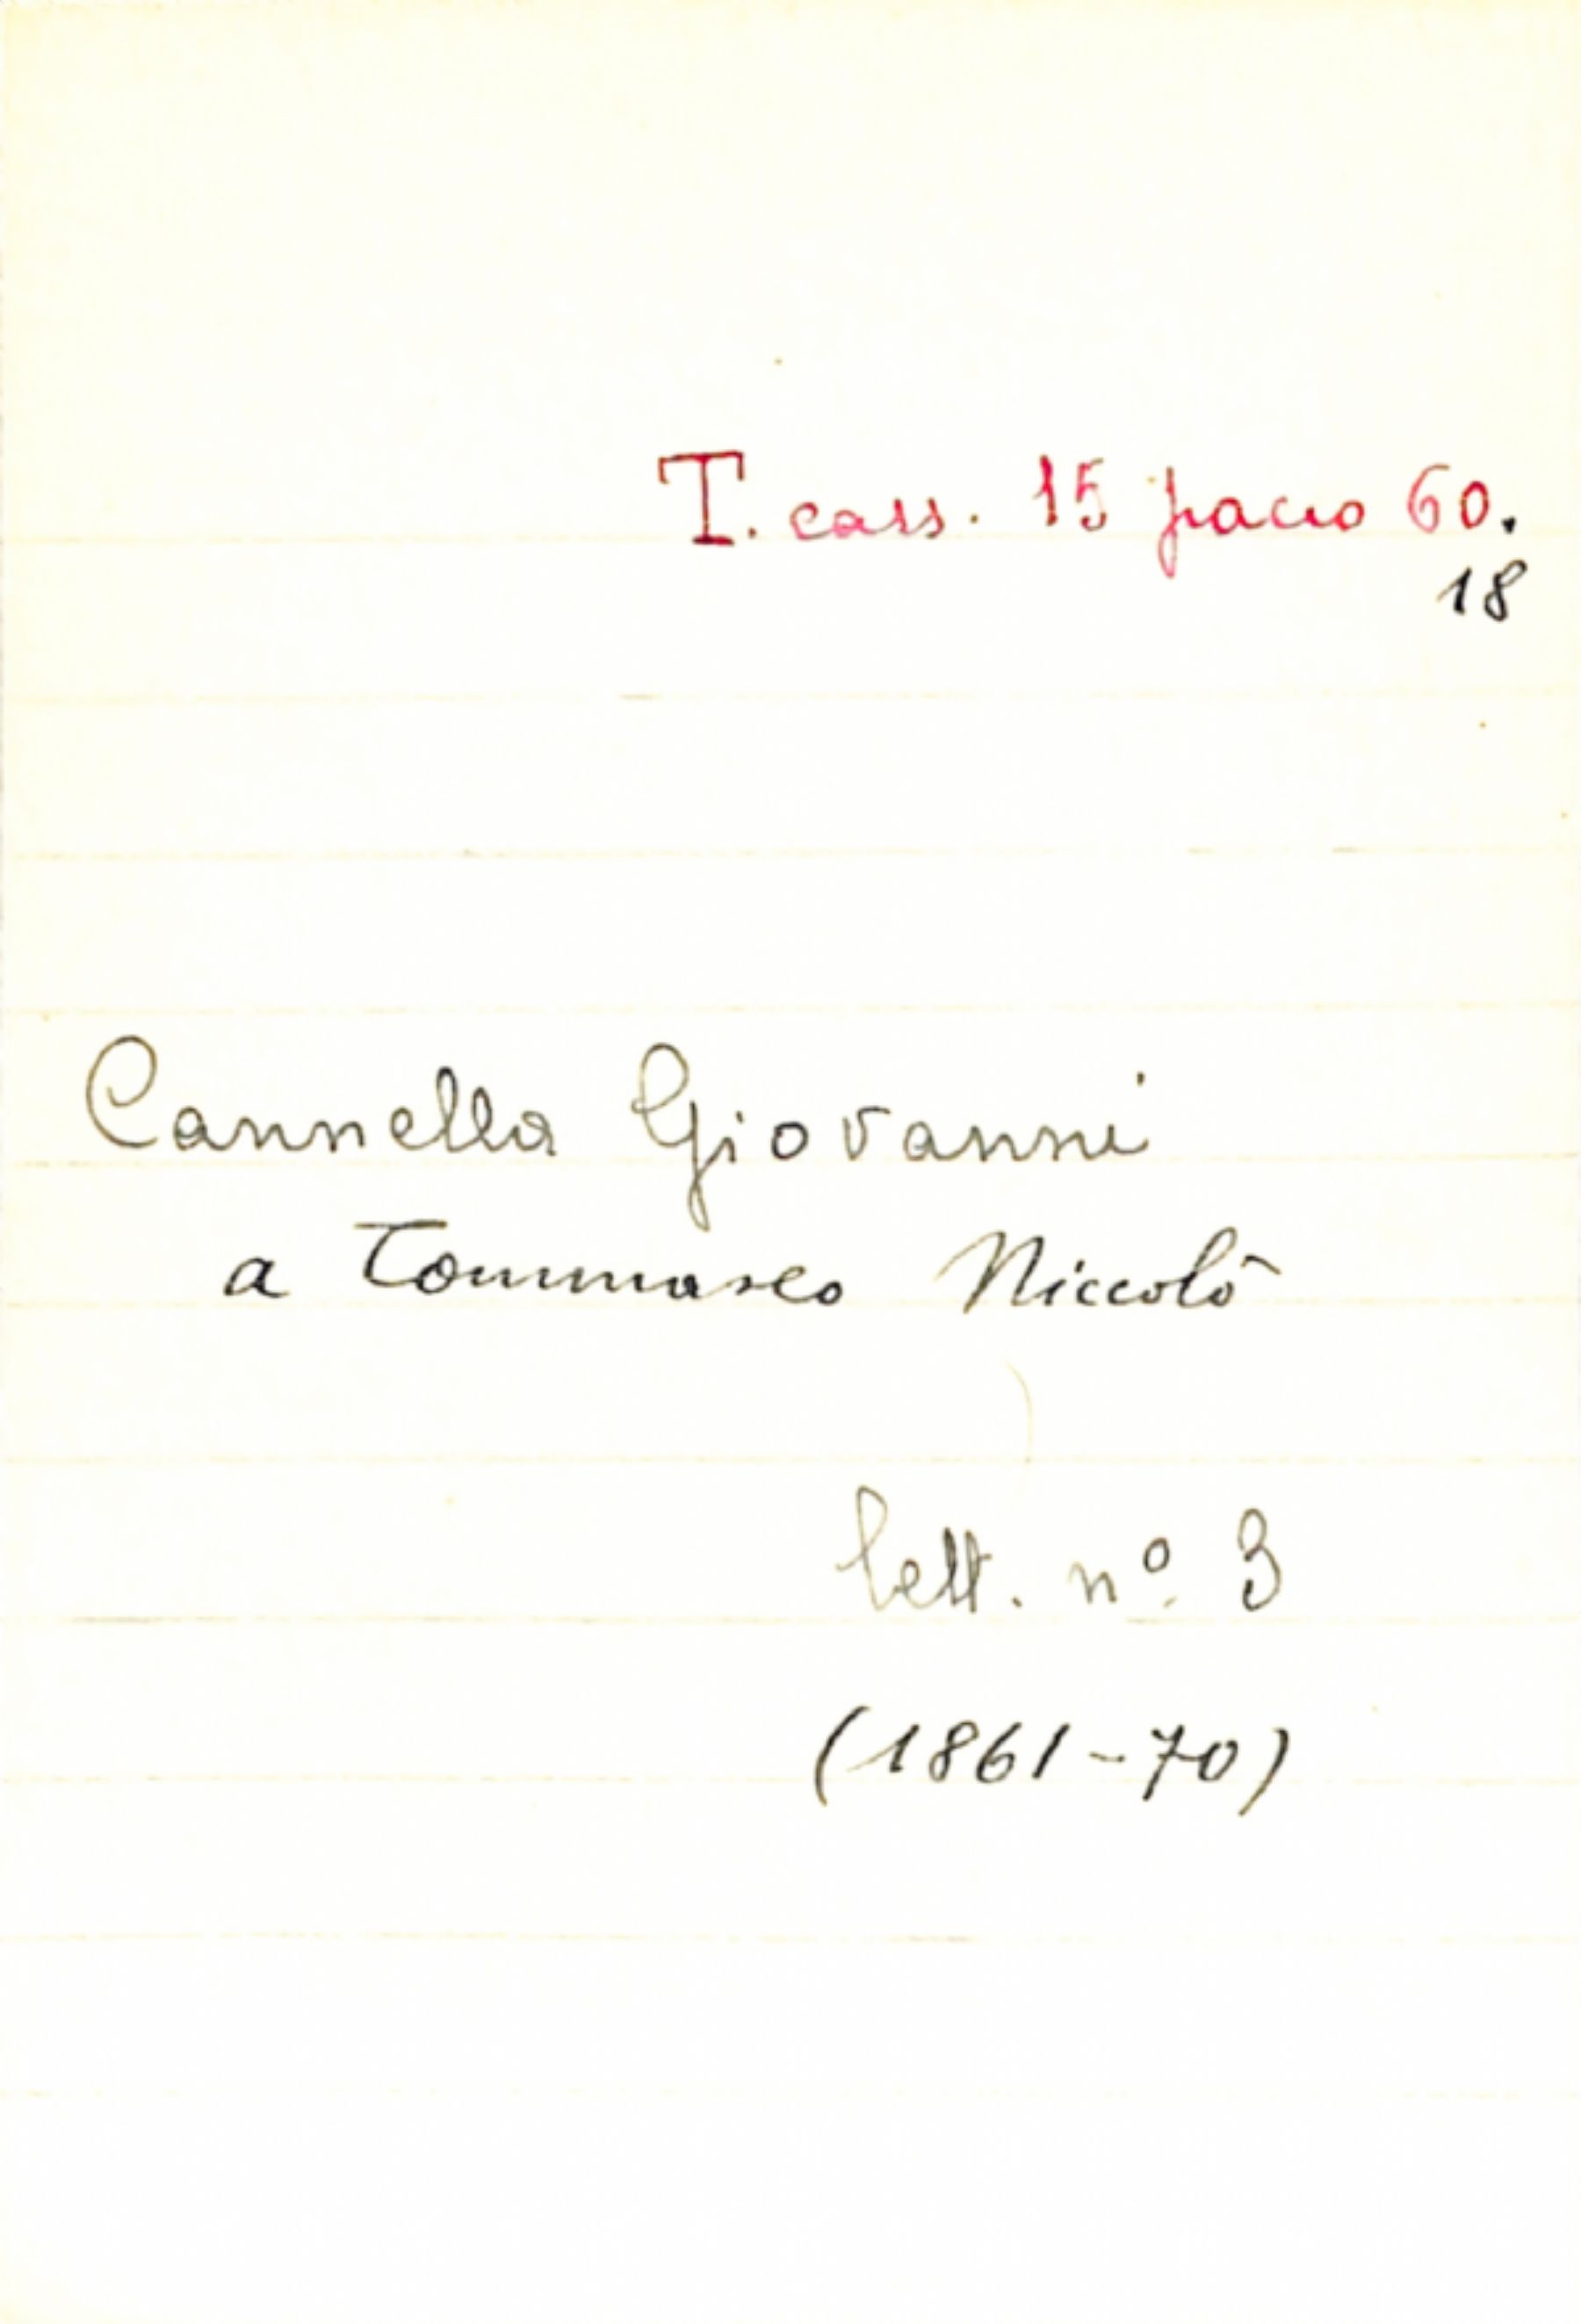 T. cass. 15 pacco 60.
18
Cannella Giovanni
a Tommaseo Niccolò
lett. nº 3
(1861-70)